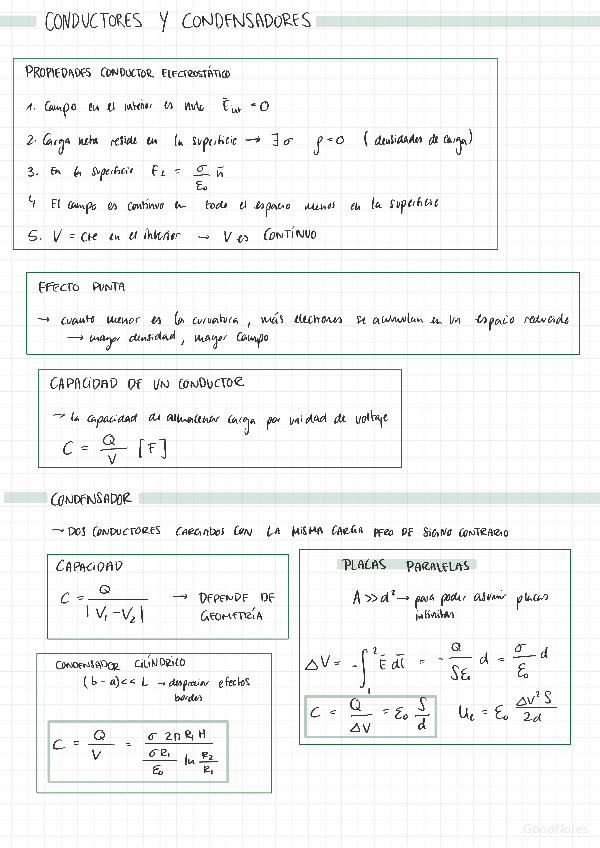 CONDUCTORES Y CONDENSADORES
PROPIEDADES CONDUCTOR ELECTROSTÁTICO
1. Campo en el interior es nulo E̅int = 0
2. Carga neta reside en la superficie → ∃ σ ρ = 0 (densidades de carga)
3. En la superficie E⊥ = σ/ε₀ n̅
4 El campo es continuo en todo el espacio menos en la superficie
5. V = cte en el interior → V es CONTÍNUO
EFECTO PUNTA
→ cuanto menor es la curvatura, más electrones se acumulan en un espacio reducido
→ mayor densidad, mayor campo
CAPACIDAD DE UN CONDUCTOR
→ la capacidad de almacenar carga por unidad de voltaje
C = Q/V [F]
CONDENSADOR
→ DOS CONDUCTORES CARGADOS CON LA MISMA CARGA PERO DE SIGNO CONTRARIO
CAPACIDAD
C = Q/|V₁ - V₂| → DEPENDE DE GEOMETRÍA
PLACAS PARALELAS
A >> d² → para poder asumir placas
infinitas
ΔV = -∫₁² E̅ dl̅ = - Q/Sε₀ d = σ/ε₀ d
C = Q/ΔV = ε₀ S/d Ue = ε₀ ΔV² S/2d
CONDENSADOR CILÍNDRICO
(b - a) << L → despreciar efectos
bordes
C = Q/V = σ 2π R₁ H / (σR₁/ε₀ ln R₂/R₁)
GoodNotes